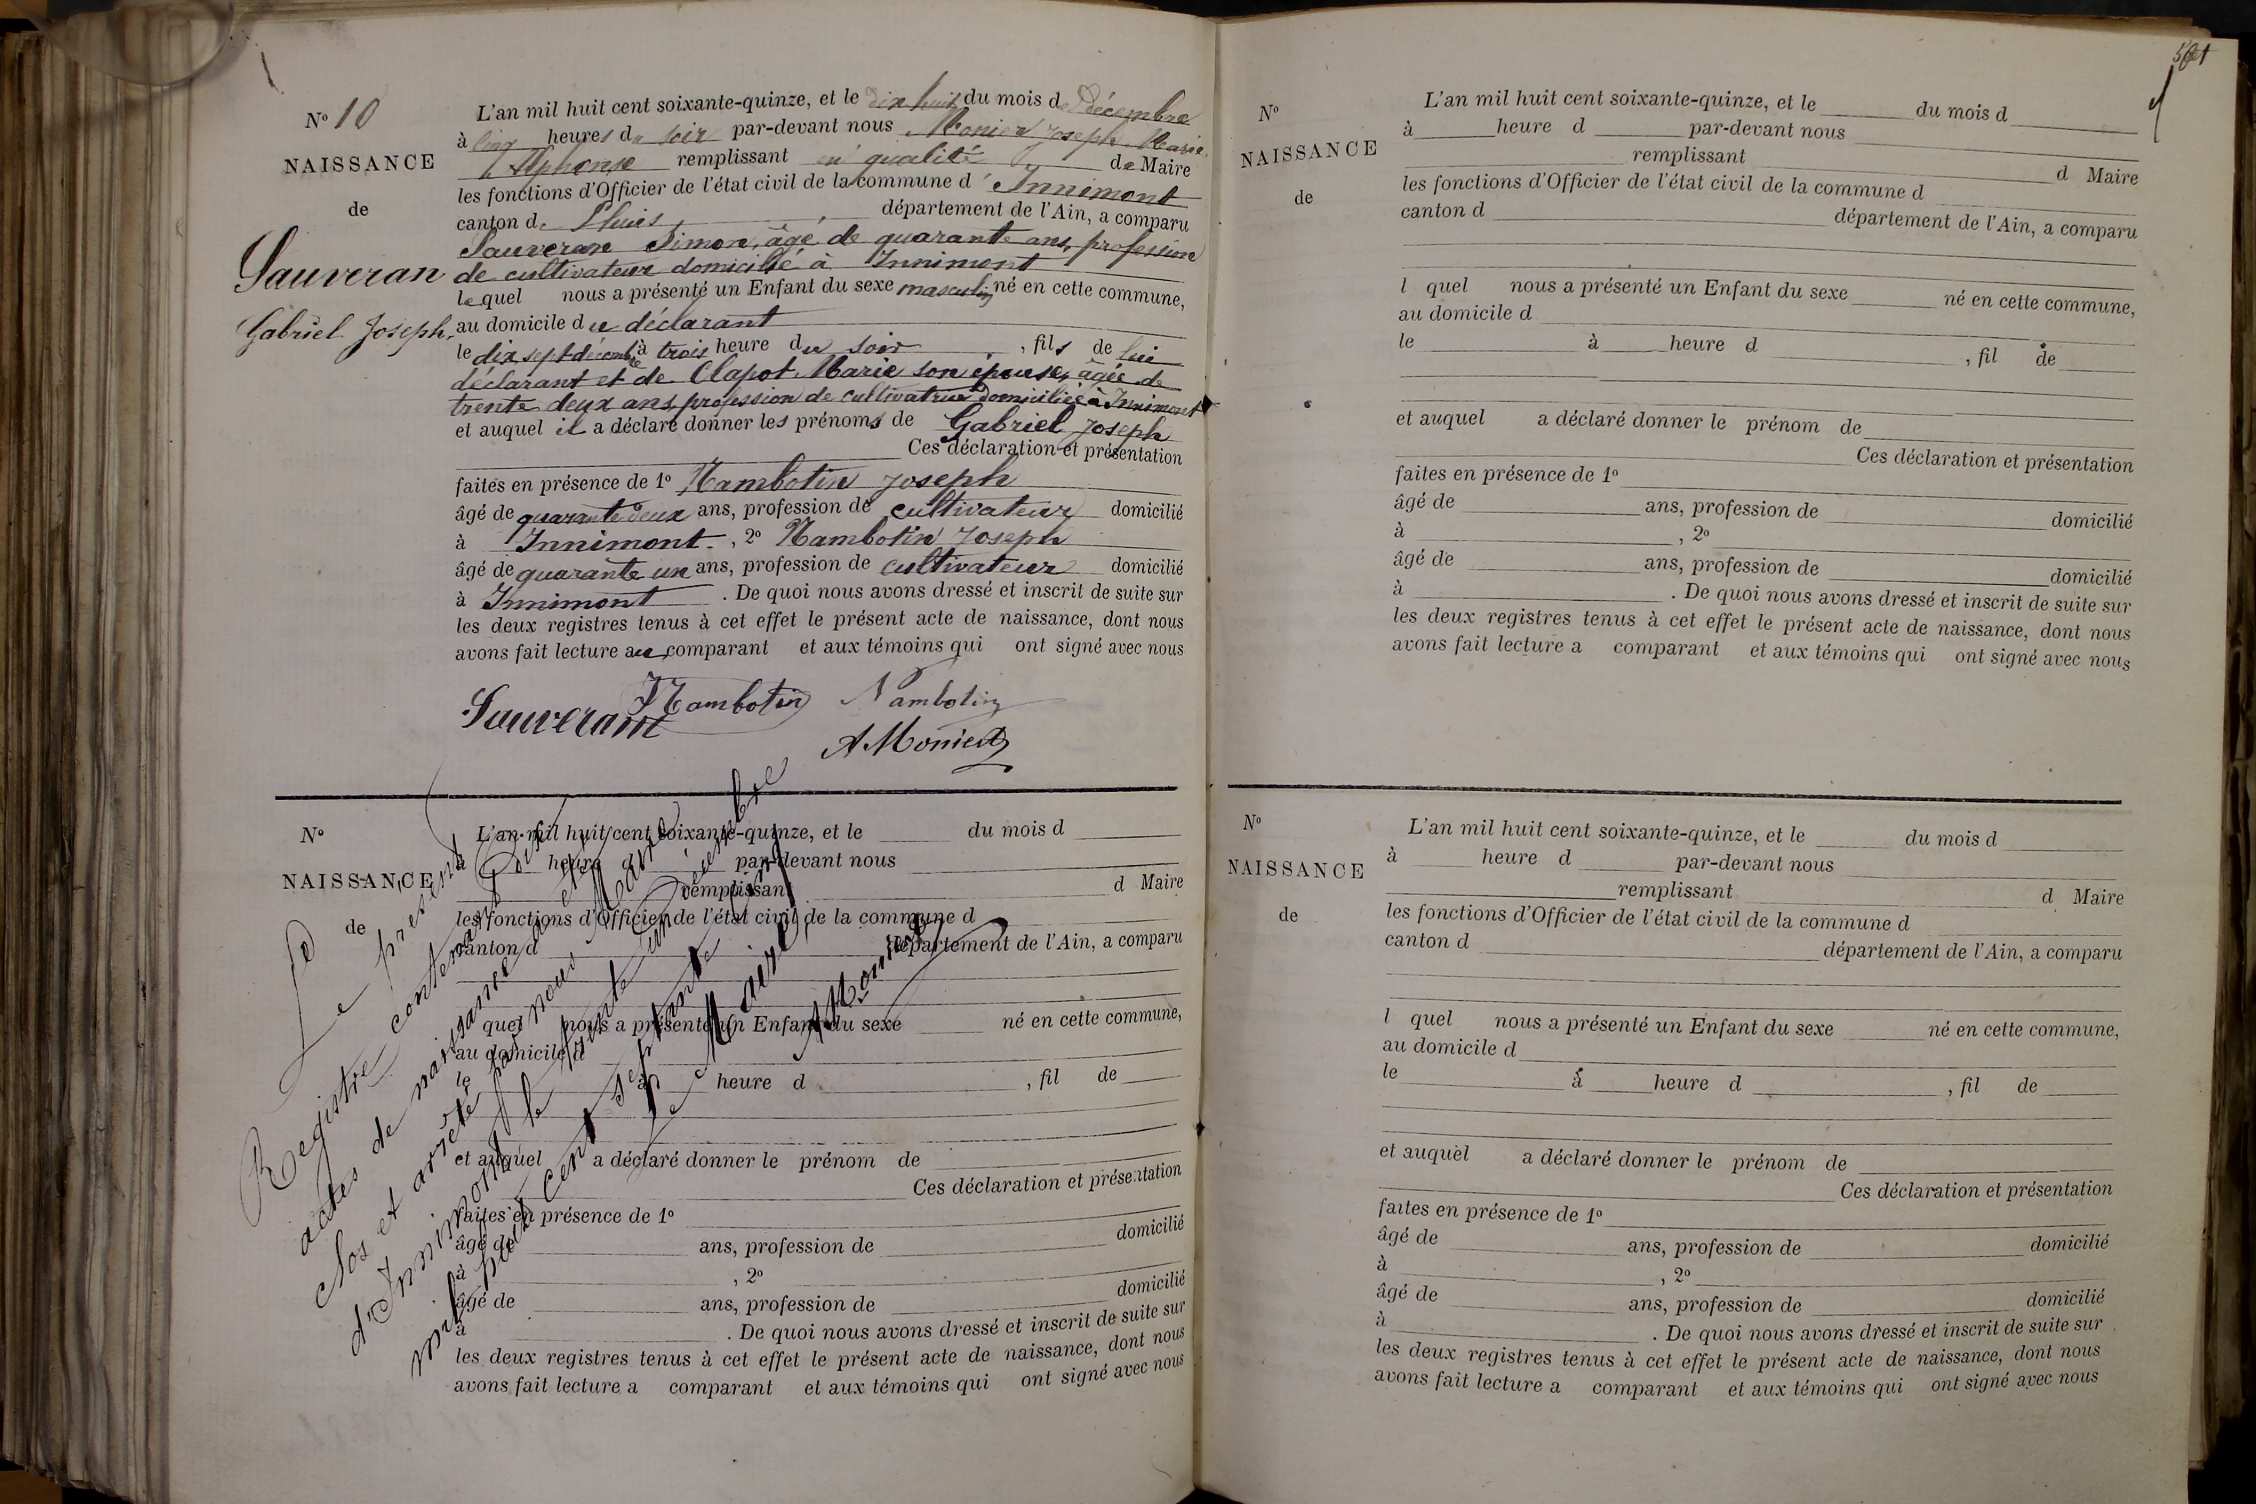 N° 10
NAISSANCE
de
Sauveran
Gabriel Joseph.
L'an mil huit cent soixante-quinze, et le dix huit du mois de Décembre
à cinq heures du soir par-devant nous Monier Joseph Marie
Alphonse remplissant en qualité de Maire
les fonctions d'Officier de l'état civil de la commune d' Innimont
canton de Lhuis département de l'Ain, a comparu
Sauveran Simon, âgé de quarante ans, profession
de cultivateur domicilié à Innimont
lequel nous a présenté un Enfant du sexe masculin né en cette commune,
au domicile du déclarant
le dix sept décembre à trois heure du soir, fils de lui
déclarant et de Clapot Marie son épouse, âgée de
trente deux ans, profession de cultivatrice domiciliée à Innimont
et auquel il a déclaré donner les prénoms de Gabriel Joseph
Ces déclaration et présentation
faites en présence de 1° Nambotin Joseph
âgé de quarante deux ans, profession de cultivateur domicilié
à Innimont, 2° Nambotin Joseph
âgé de quarante un ans, profession de cultivateur domicilié
à Innimont. De quoi nous avons dressé et inscrit de suite sur
les deux registres tenus à cet effet le présent acte de naissance, dont nous
avons fait lecture au comparant et aux témoins qui ont signé avec nous
Sauverant Nambotin Nambotin
A Monier
N°
NAISSANCE
de
L'an mil huit cent soixante-quinze, et le du mois d
à heure d par-devant nous
remplissant d Maire
les fonctions d'Officier de l'état civil de la commune d
canton d département de l'Ain, a comparu
l quel nous a présenté un Enfant du sexe né en cette commune,
au domicile d
le à heure d , fil de
et auquel a déclaré donner le prénom de
Ces déclaration et présentation
faites en présence de 1°
âgé de ans, profession de domicilié
à , 2°
âgé de ans, profession de domicilié
à . De quoi nous avons dressé et inscrit de suite sur
les deux registres tenus à cet effet le présent acte de naissance, dont nous
avons fait lecture a comparant et aux témoins qui ont signé avec nous
Le présent
Registre contenant dix
actes de naissance a été
clos et arrêté par nous Maire
d'Innimont le trente un décembre
mil huit cent septante cinq
Le Maire,
A Monier
N°
NAISSANCE
de
L'an mil huit cent soixante-quinze, et le du mois d
à heure d par-devant nous
remplissant d Maire
les fonctions d'Officier de l'état civil de la commune d
canton d département de l'Ain, a comparu
l quel nous a présenté un Enfant du sexe né en cette commune,
au domicile d
le à heure d , fil de
et auquel a déclaré donner le prénom de
Ces déclaration et présentation
faites en présence de 1°
âgé de ans, profession de domicilié
à , 2°
âgé de ans, profession de domicilié
à . De quoi nous avons dressé et inscrit de suite sur
les deux registres tenus à cet effet le présent acte de naissance, dont nous
avons fait lecture a comparant et aux témoins qui ont signé avec nous
N°
NAISSANCE
de
L'an mil huit cent soixante-quinze, et le du mois d
à heure d par-devant nous
remplissant d Maire
les fonctions d'Officier de l'état civil de la commune d
canton d département de l'Ain, a comparu
l quel nous a présenté un Enfant du sexe né en cette commune,
au domicile d
le à heure d , fil de
et auquel a déclaré donner le prénom de
Ces déclaration et présentation
faites en présence de 1°
âgé de ans, profession de domicilié
à , 2°
âgé de ans, profession de domicilié
à . De quoi nous avons dressé et inscrit de suite sur
les deux registres tenus à cet effet le présent acte de naissance, dont nous
avons fait lecture a comparant et aux témoins qui ont signé avec nous